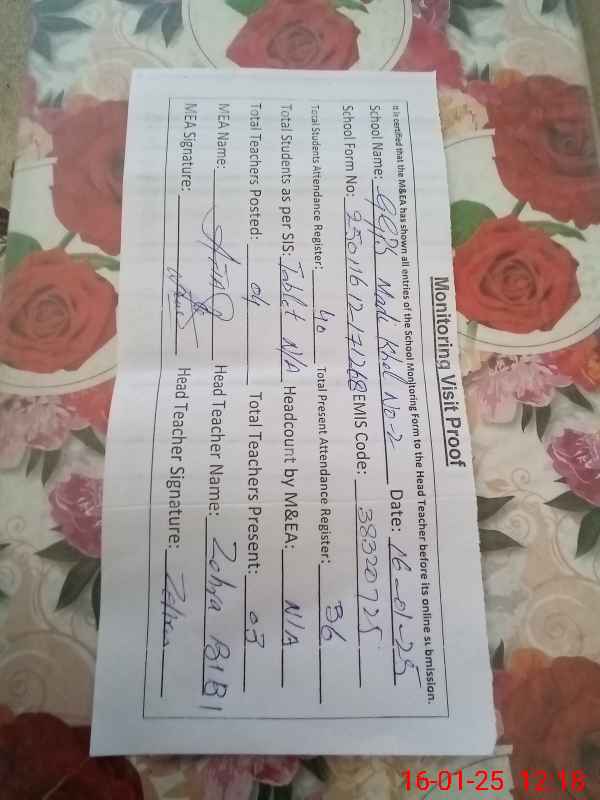 Monitoring Visit Proof
It is certified that the M&EA has shown all entries of the School Monitoring Form to the Head Teacher before its online submission.
School Name: GGPS Nadi Khel No-2 Date: 16-01-25
School Form No: 25011612171268 EMIS Code: 38320725
Total Students Attendance Register: 40 Total Present Attendance Register: 36
Total Students as per SIS: Tablet N/A Headcount by M&EA: N/A
Total Teachers Posted: 04 Total Teachers Present: 03
MEA Name: Head Teacher Name: Zohra BIBI
MEA Signature: Head Teacher Signature: Zohra
16-01-25 12:18